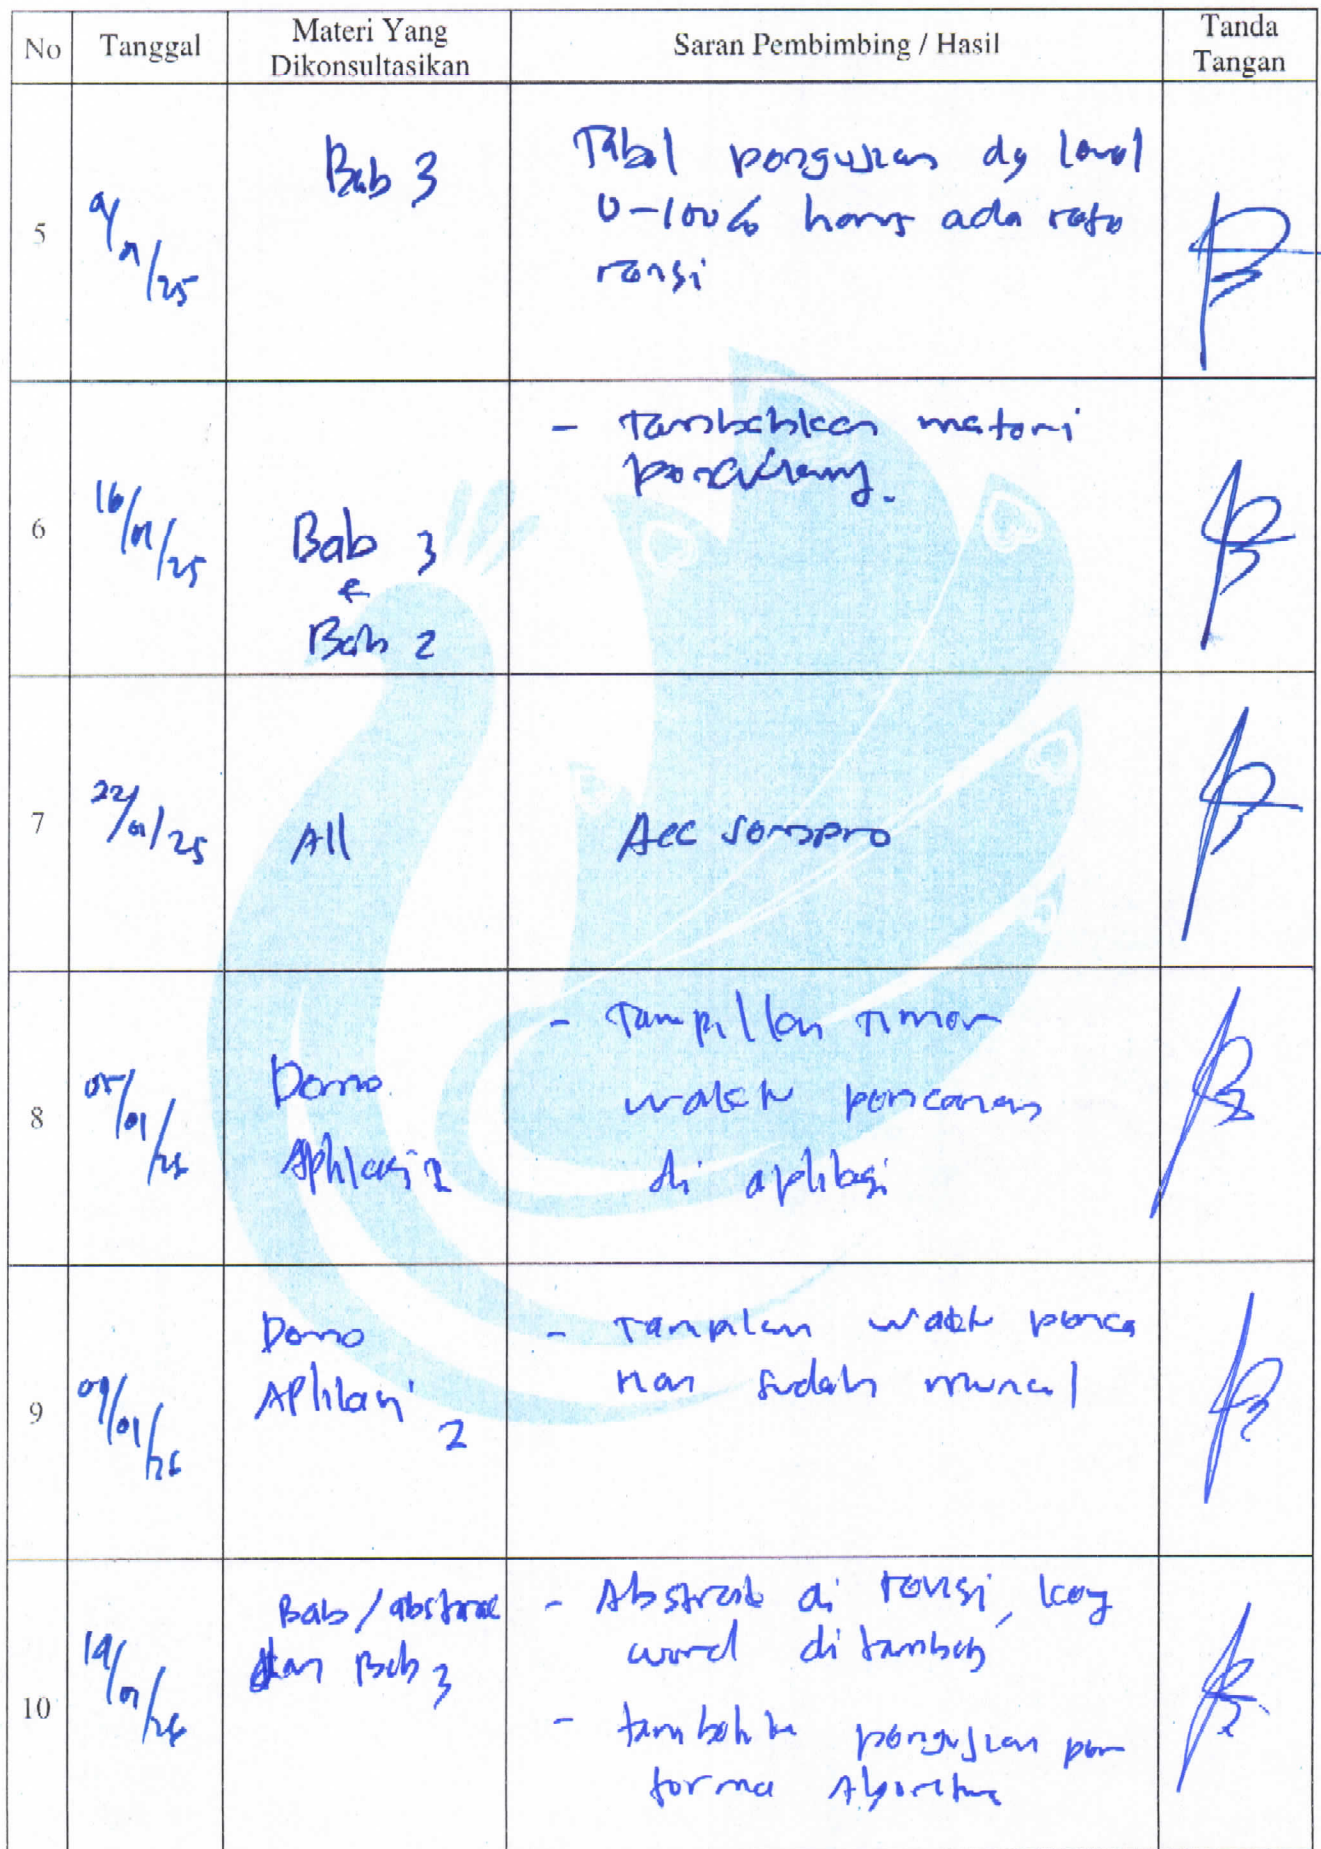 No Tanggal Materi Yang Dikonsultasikan Saran Pembimbing / Hasil Tanda Tangan
5 9/01/25 Bab 3 Tabel pengujian dg level
0-100% harus ada refe
rensi
6 16/01/25 Bab 3
&
Bab 2
- Tambahkan materi
7 22/01/25 All Acc sempro
8 05/01/26 Demo
Aplikasi 1
- Tampilkan timer
waktu pencarian
di aplikasi
9 09/01/26 Demo
Aplikasi 2
- Tampilan waktu penca
rian sudah muncul
10 19/01/26 Bab / abstrak
dan Bab 3
- Abstrak di revisi, key
word di tambah
- tambahke pengujian per
forma Algoritma